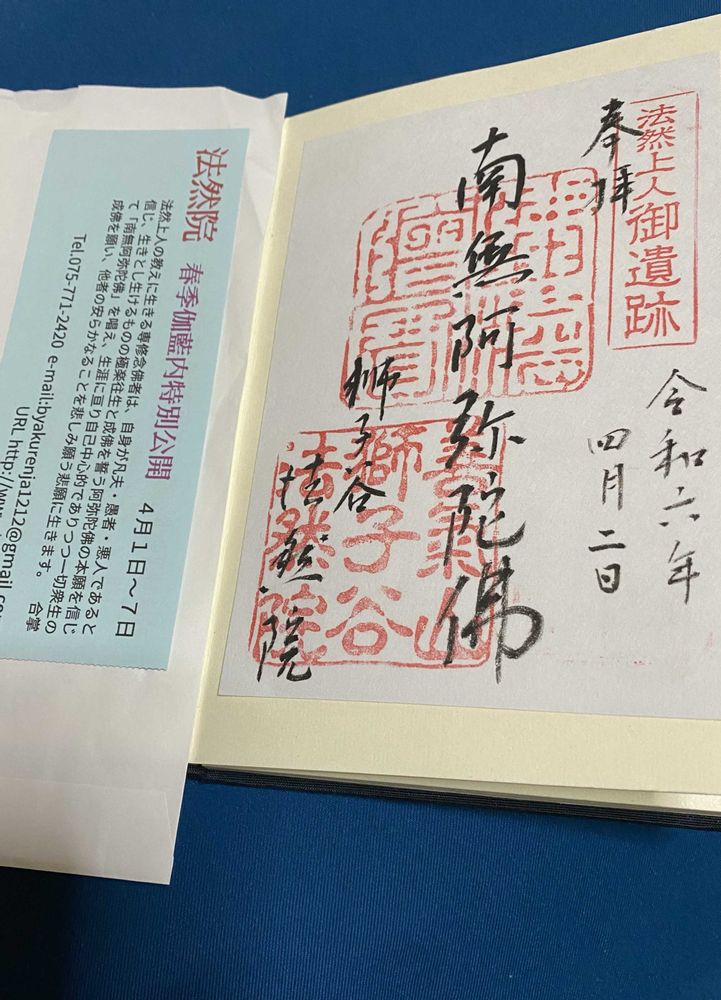 法然院 春季伽藍内特別公開 4月1日～7日
法然上人の教えに生きる専修念佛者は、自身が凡夫・愚者・悪人であると
信じ、生きとし生けるものの極楽往生と成佛を誓う阿弥陀佛の本願を信じ
て「南無阿弥陀佛」を唱え、生涯に亘り自己中心的でありつつ一切衆生の
成佛を願い、他者の安らかなることを悲しみ願う悲願に生きます。 合掌
Tel.075-771-2420 e-mail:byakurenja1212@gmail.co
URL http://www.
法然上人御遺跡
奉拝
令和六年
四月二日
南無阿弥陀佛
獅子谷
法然院
善氣山
獅子谷
法然院